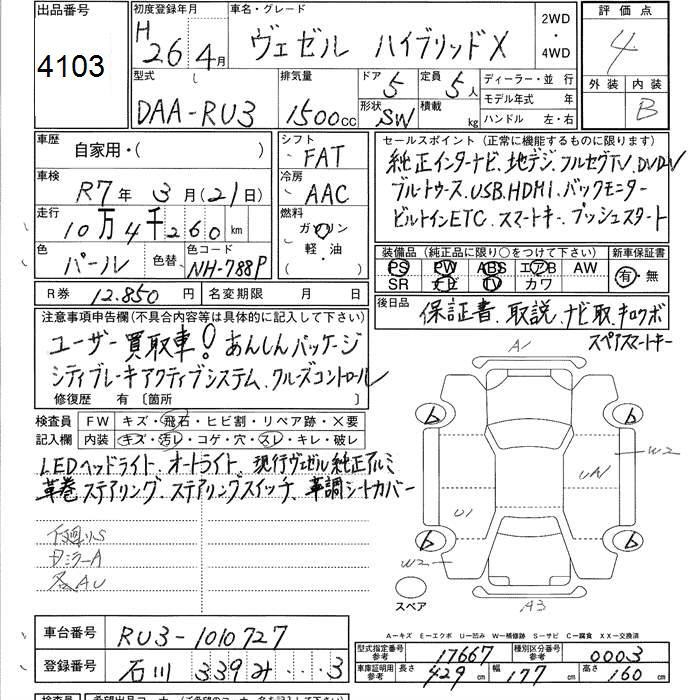 出品番号
4103
初度登録年月
H 26 4月
車名・グレード
ヴェゼル ハイブリッドX
2WD
・
4WD
評価点
4
外装 内装
B
型式
DAA-RU3
排気量
1500cc
ドア
5
定員
5人
形状
SW
積載
kg
ディーラー・並 行
モデル年式 年
ハンドル 左・右
車歴
自家用・( )
シフト
FAT
車検
R7年 3月(21日)
冷房
AAC
走行
10万4千260km
燃料
ガソリン
軽・油
色
パール
色替
色コード
NH-788P
R券 12.850円
名変期限 月 日
セールスポイント (正常に機能するものに限ります)
純正インターナビ、地デジ、フルセグTV、DVD-V
ブルートゥース、USB、HDMI、バックモニター
ビルトインETC、スマートキー、プッシュスタート
装備品 (純正品に限り○をつけて下さい)
新車保証書
PS PW ABS エアB AW
SR ナビ TV カワ
有・無
後日品
保証書、取説、ナビ取、キロクボ
スペアスマートキー
注意事項申告欄(不具合内容等は具体的に記入して下さい)
ユーザー買取車!あんしんパッケージ
シティブレーキアクティブシステム、クルーズコントロール
修復歴 有 〔箇所 〕
検査員
記入欄
FW キズ・飛石・ヒビ割・リペア跡・X要
内装 キズ・汚レ・コゲ・穴・スレ・キレ・破レ
LEDヘッドライト、オートライト、現行ヴェゼル純正アルミ
革巻ステアリング、ステアリングスイッチ、革調シートカバー
下廻りS
A1
W2
U1
W2
A3
スペア
A−キズ E−エクボ U−凹み W−補修跡 S−サビ C−腐食 XX−交換済
車台番号
RU3-1010727
登録番号
石川 339 み ...3
型式指定番号
参考
17667
種別区分番号
参考
0003
車庫証明用
参考
長さ 429cm
幅 177cm
高さ 160cm